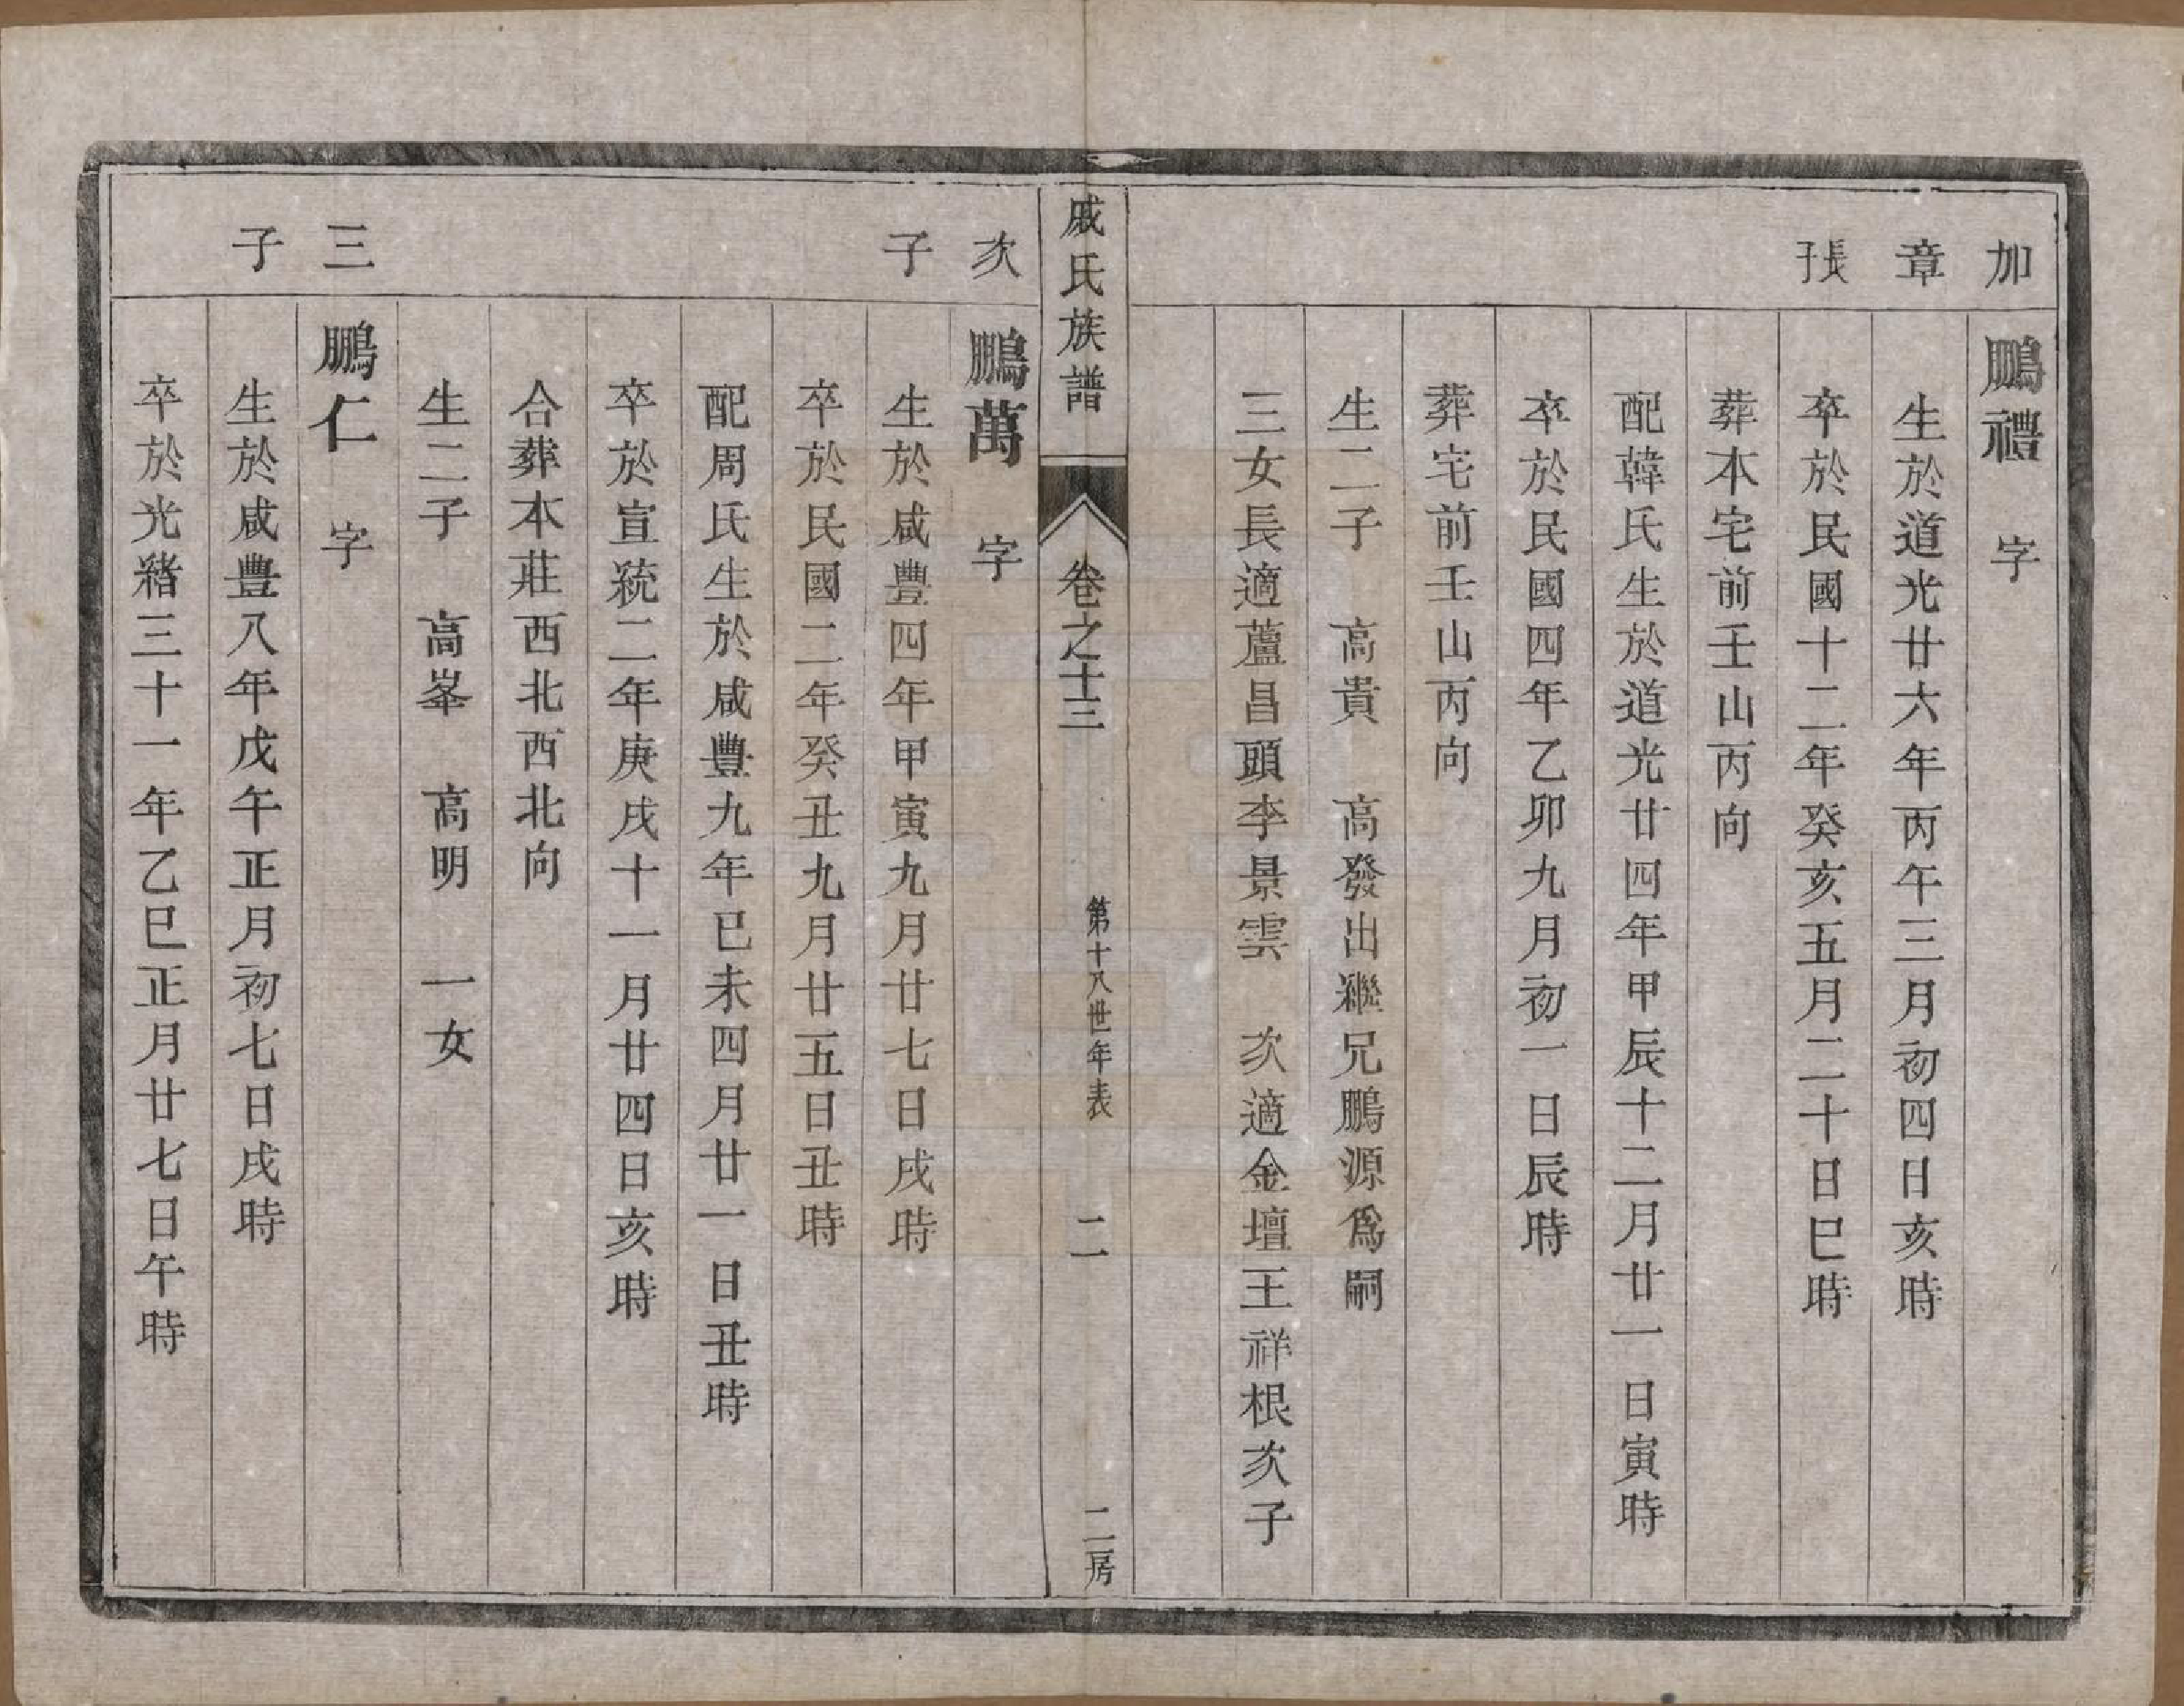 加章長子
鵬禮　字
生於道光廿六年丙午三月初四日亥時
卒於民國十二年癸亥五月二十日巳時
葬本宅前壬山丙向
配韓氏生於道光廿四年甲辰十二月廿一日寅時
卒於民國四年乙卯九月初一日辰時
葬宅前壬山丙向
生二子　高貴　高發出繼兄鵬源爲嗣
三女長適蘆昌頭李景雲　次適金壇王祥根次子
戚氏族譜　卷之十三　第十八世年表　二　二房
次子
鵬萬　字
生於咸豊四年甲寅九月廿七日戌時
卒於民國二年癸丑九月廿五日丑時
配周氏生於咸豊九年已未四月廿一日丑時
卒於宣統二年庚戌十一月廿四日亥時
合葬本莊西北西北向
生二子　高峯　高明　一女
三子
鵬仁　字
生於咸豊八年戊午正月初七日戌時
卒於光緒三十一年乙巳正月廿七日午時